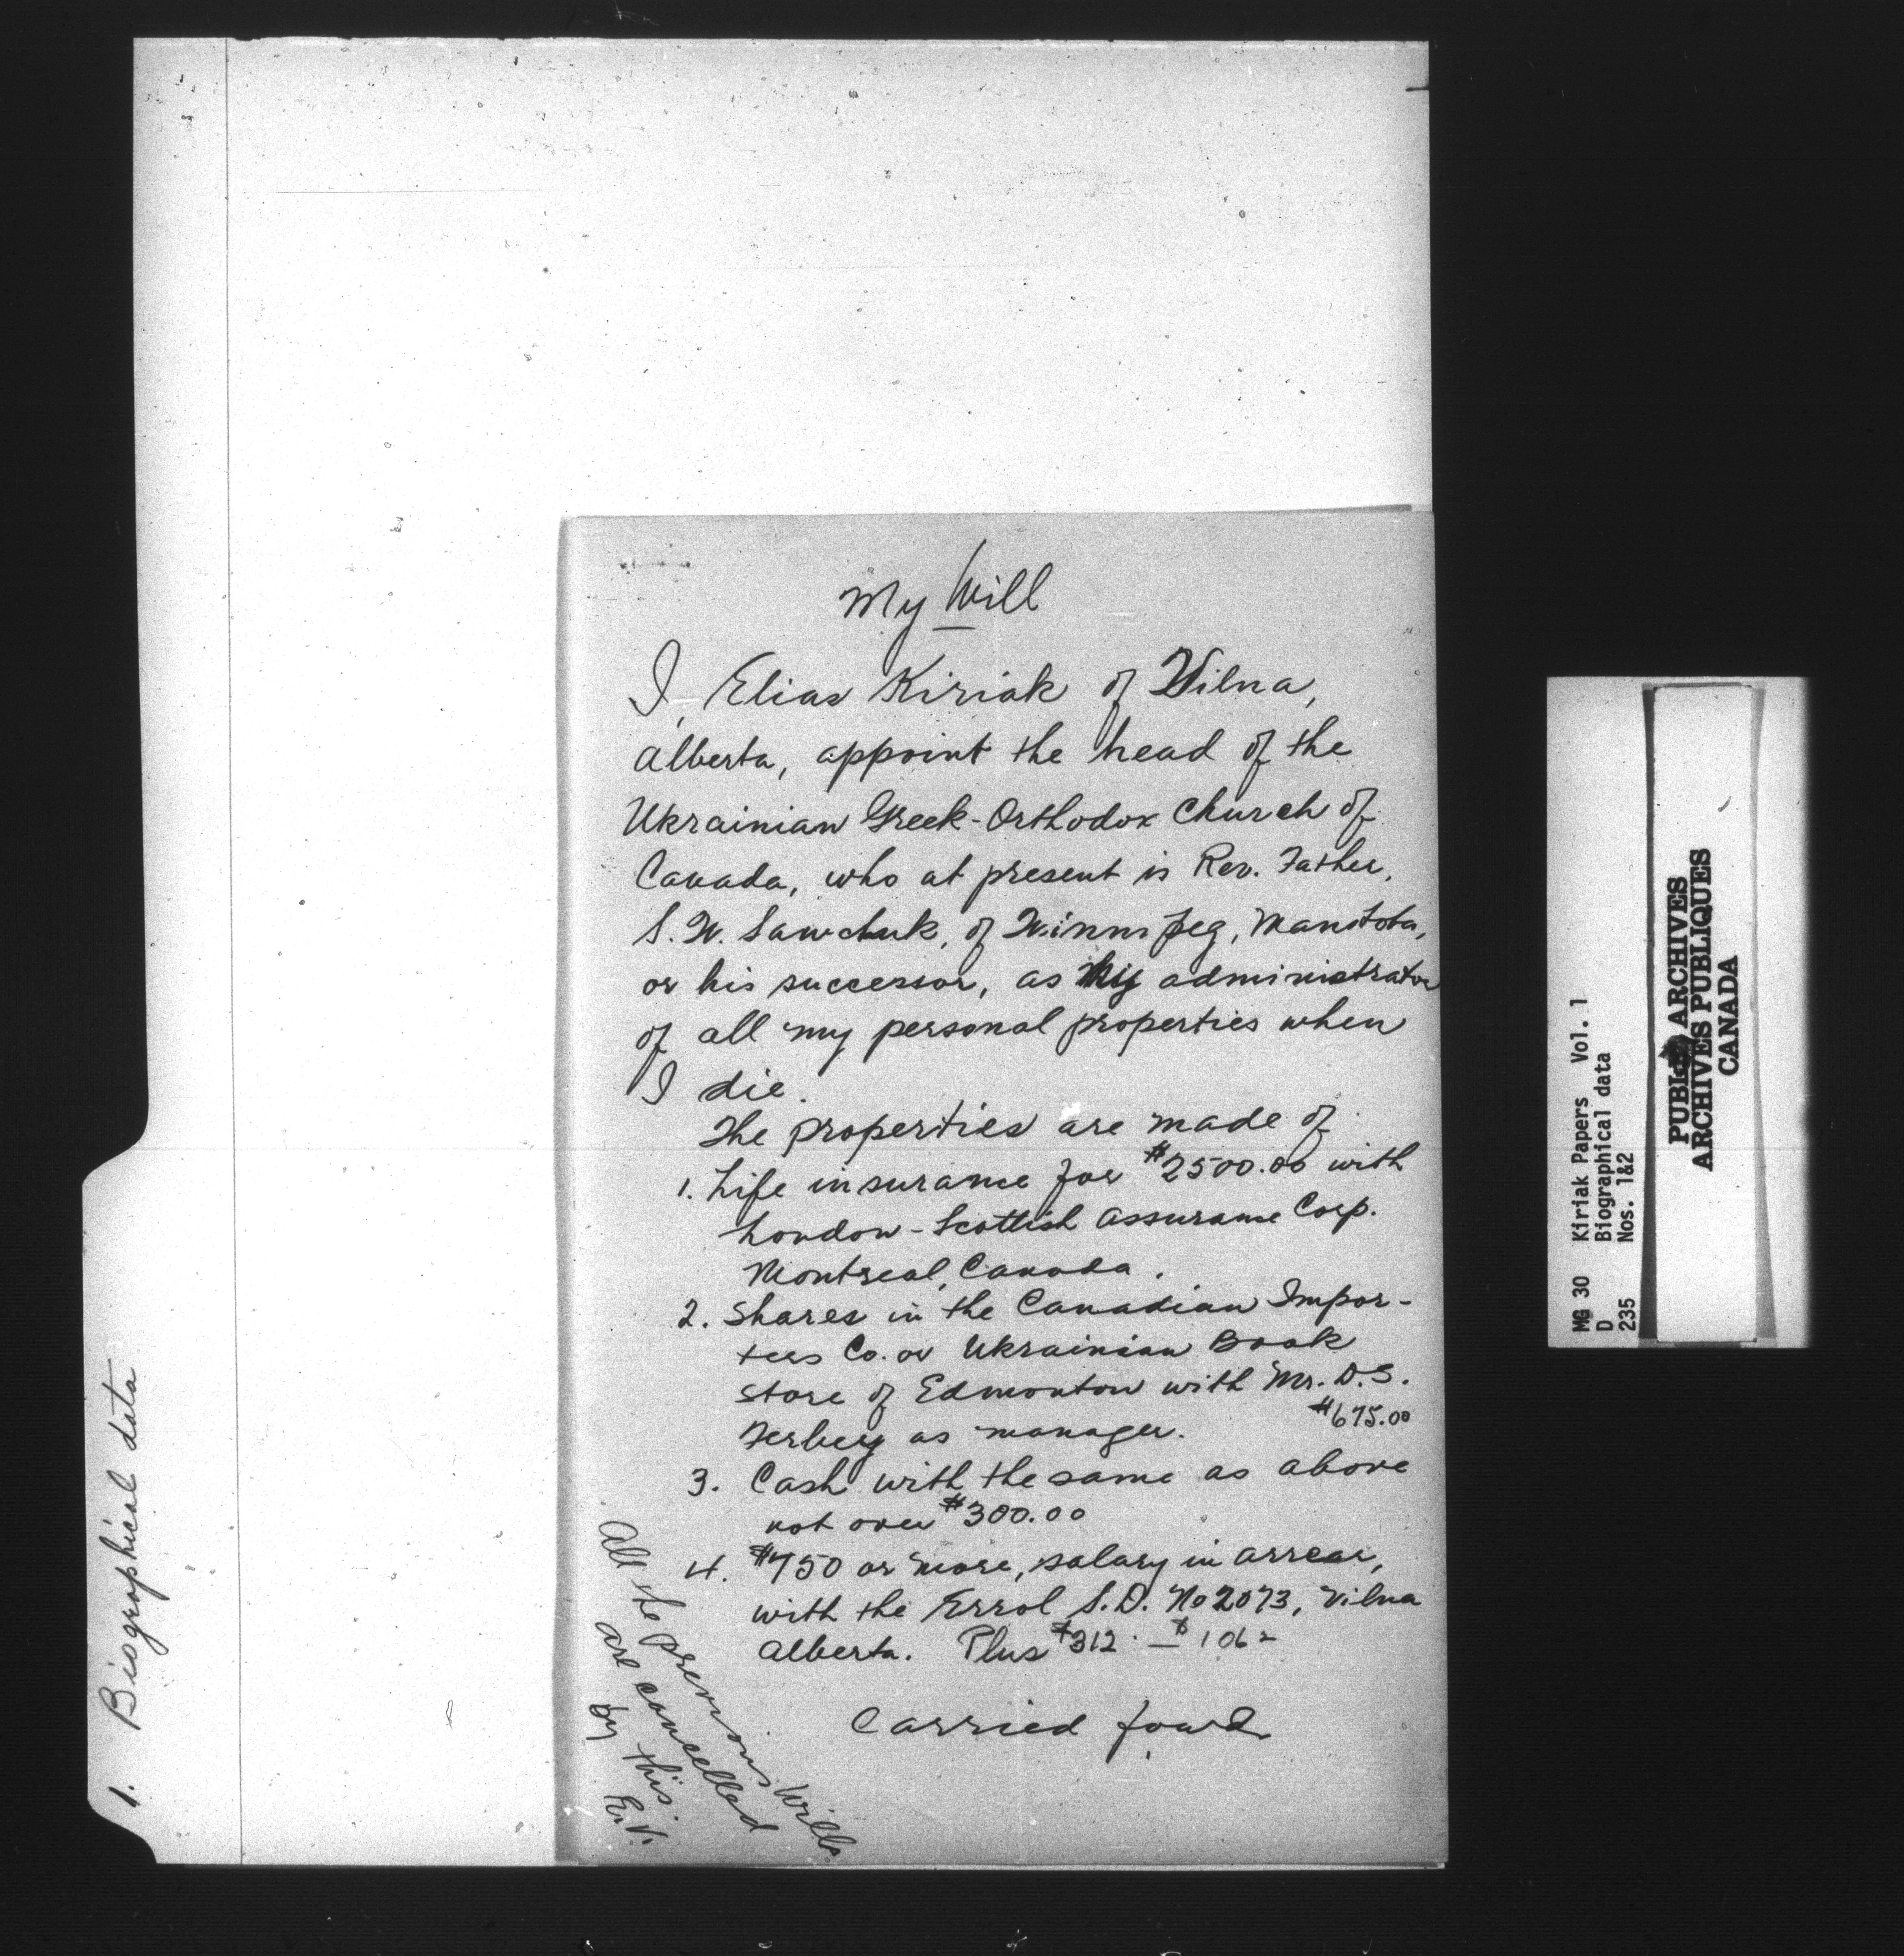 My Will
I, Elias Kiriak of Vilna,
Alberta, appoint the head of the
Ukrainian Greek-Orthodox Church of
Canada, who at present is Rev. Father,
S. W. Sawchuk, of Winnipeg, Manitoba,
or his successor, as my administrator
of all my personal properties when
I die.
The properties are made of
1. Life insurance for $2500.00 with
London-Scottish Assurance Corp.
Montreal, Canada.
2. Shares in the Canadian Impor-
ters Co. or Ukrainian Book
Store of Edmonton with Mr. D.S.
Ferbey as manager. $675.00
3. Cash with the same as above
not over $300.00
4. $750 or more, salary in arrear,
with the Errol S.D. No 2073, Vilna
Alberta. Plus $312 - $1062
Carried forwd
All the previous Wills
are cancelled
by this.
1. Biographical data
MG 30 Kiriak Papers Vol. 1
D Biographical data
235 Nos. 1&2
PUBLIC ARCHIVES
ARCHIVES PUBLIQUES
CANADA